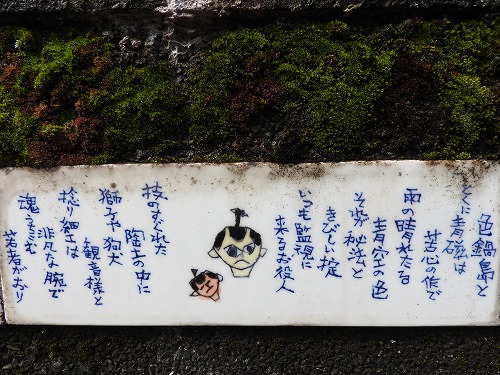 色鍋島と
とくに青磁は
苦心の作で
雨の晴れたる
青空の色
それが秘法と
きびしい掟
いつも監視に
来るお役人
技すぐれた
陶工の中に
獅子や狛犬
観音様と
捻り細工は
非凡な腕で
魂こもる
若者がおり